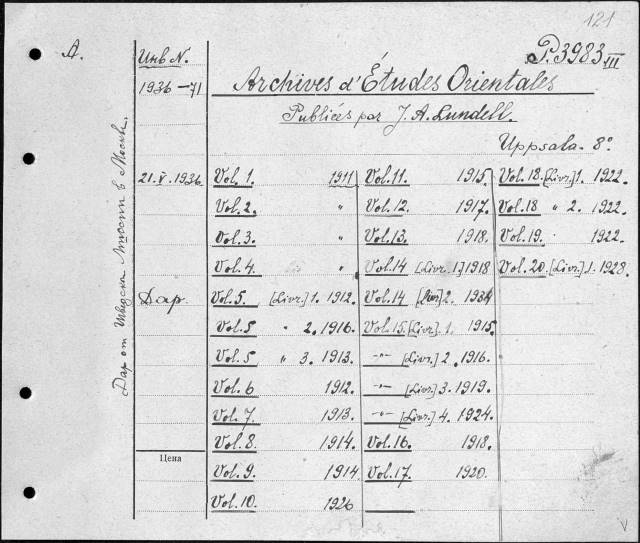 121
A.
Инв N.
P.3983 III
1936-71
Archives d'Études Orientales
Publiées par J. A. Lundell.
Uppsala. 8°
21.V.1936
Дар
Дар от Шведск. Миссии в Москве.
Цена
Vol. 1. 1911
Vol. 2. "
Vol. 3. "
Vol. 4. "
Vol. 5 [Livr.] 1. 1912.
Vol. 5 " 2. 1916.
Vol. 5 " 3. 1913.
Vol. 6 1912.
Vol. 7. 1913.
Vol. 8. 1914.
Vol. 9. 1914
Vol. 10. 1926
Vol. 11. 1915.
Vol. 12. 1917.
Vol. 13. 1918.
Vol. 14 [Livr. 1.] 1918
Vol. 14 [Livr] 2. 1934
Vol. 15. [Livr.] 1. 1915.
-"- [Livr.] 2. 1916.
-"- [Livr.] 3. 1919.
-"- [Livr.] 4. 1924.
Vol. 16. 1918.
Vol. 17. 1920.
Vol. 18. [Livr.] 1. 1922.
Vol. 18 " 2. 1922.
Vol. 19. 1922.
Vol. 20. [Livr.] 1. 1928.
V